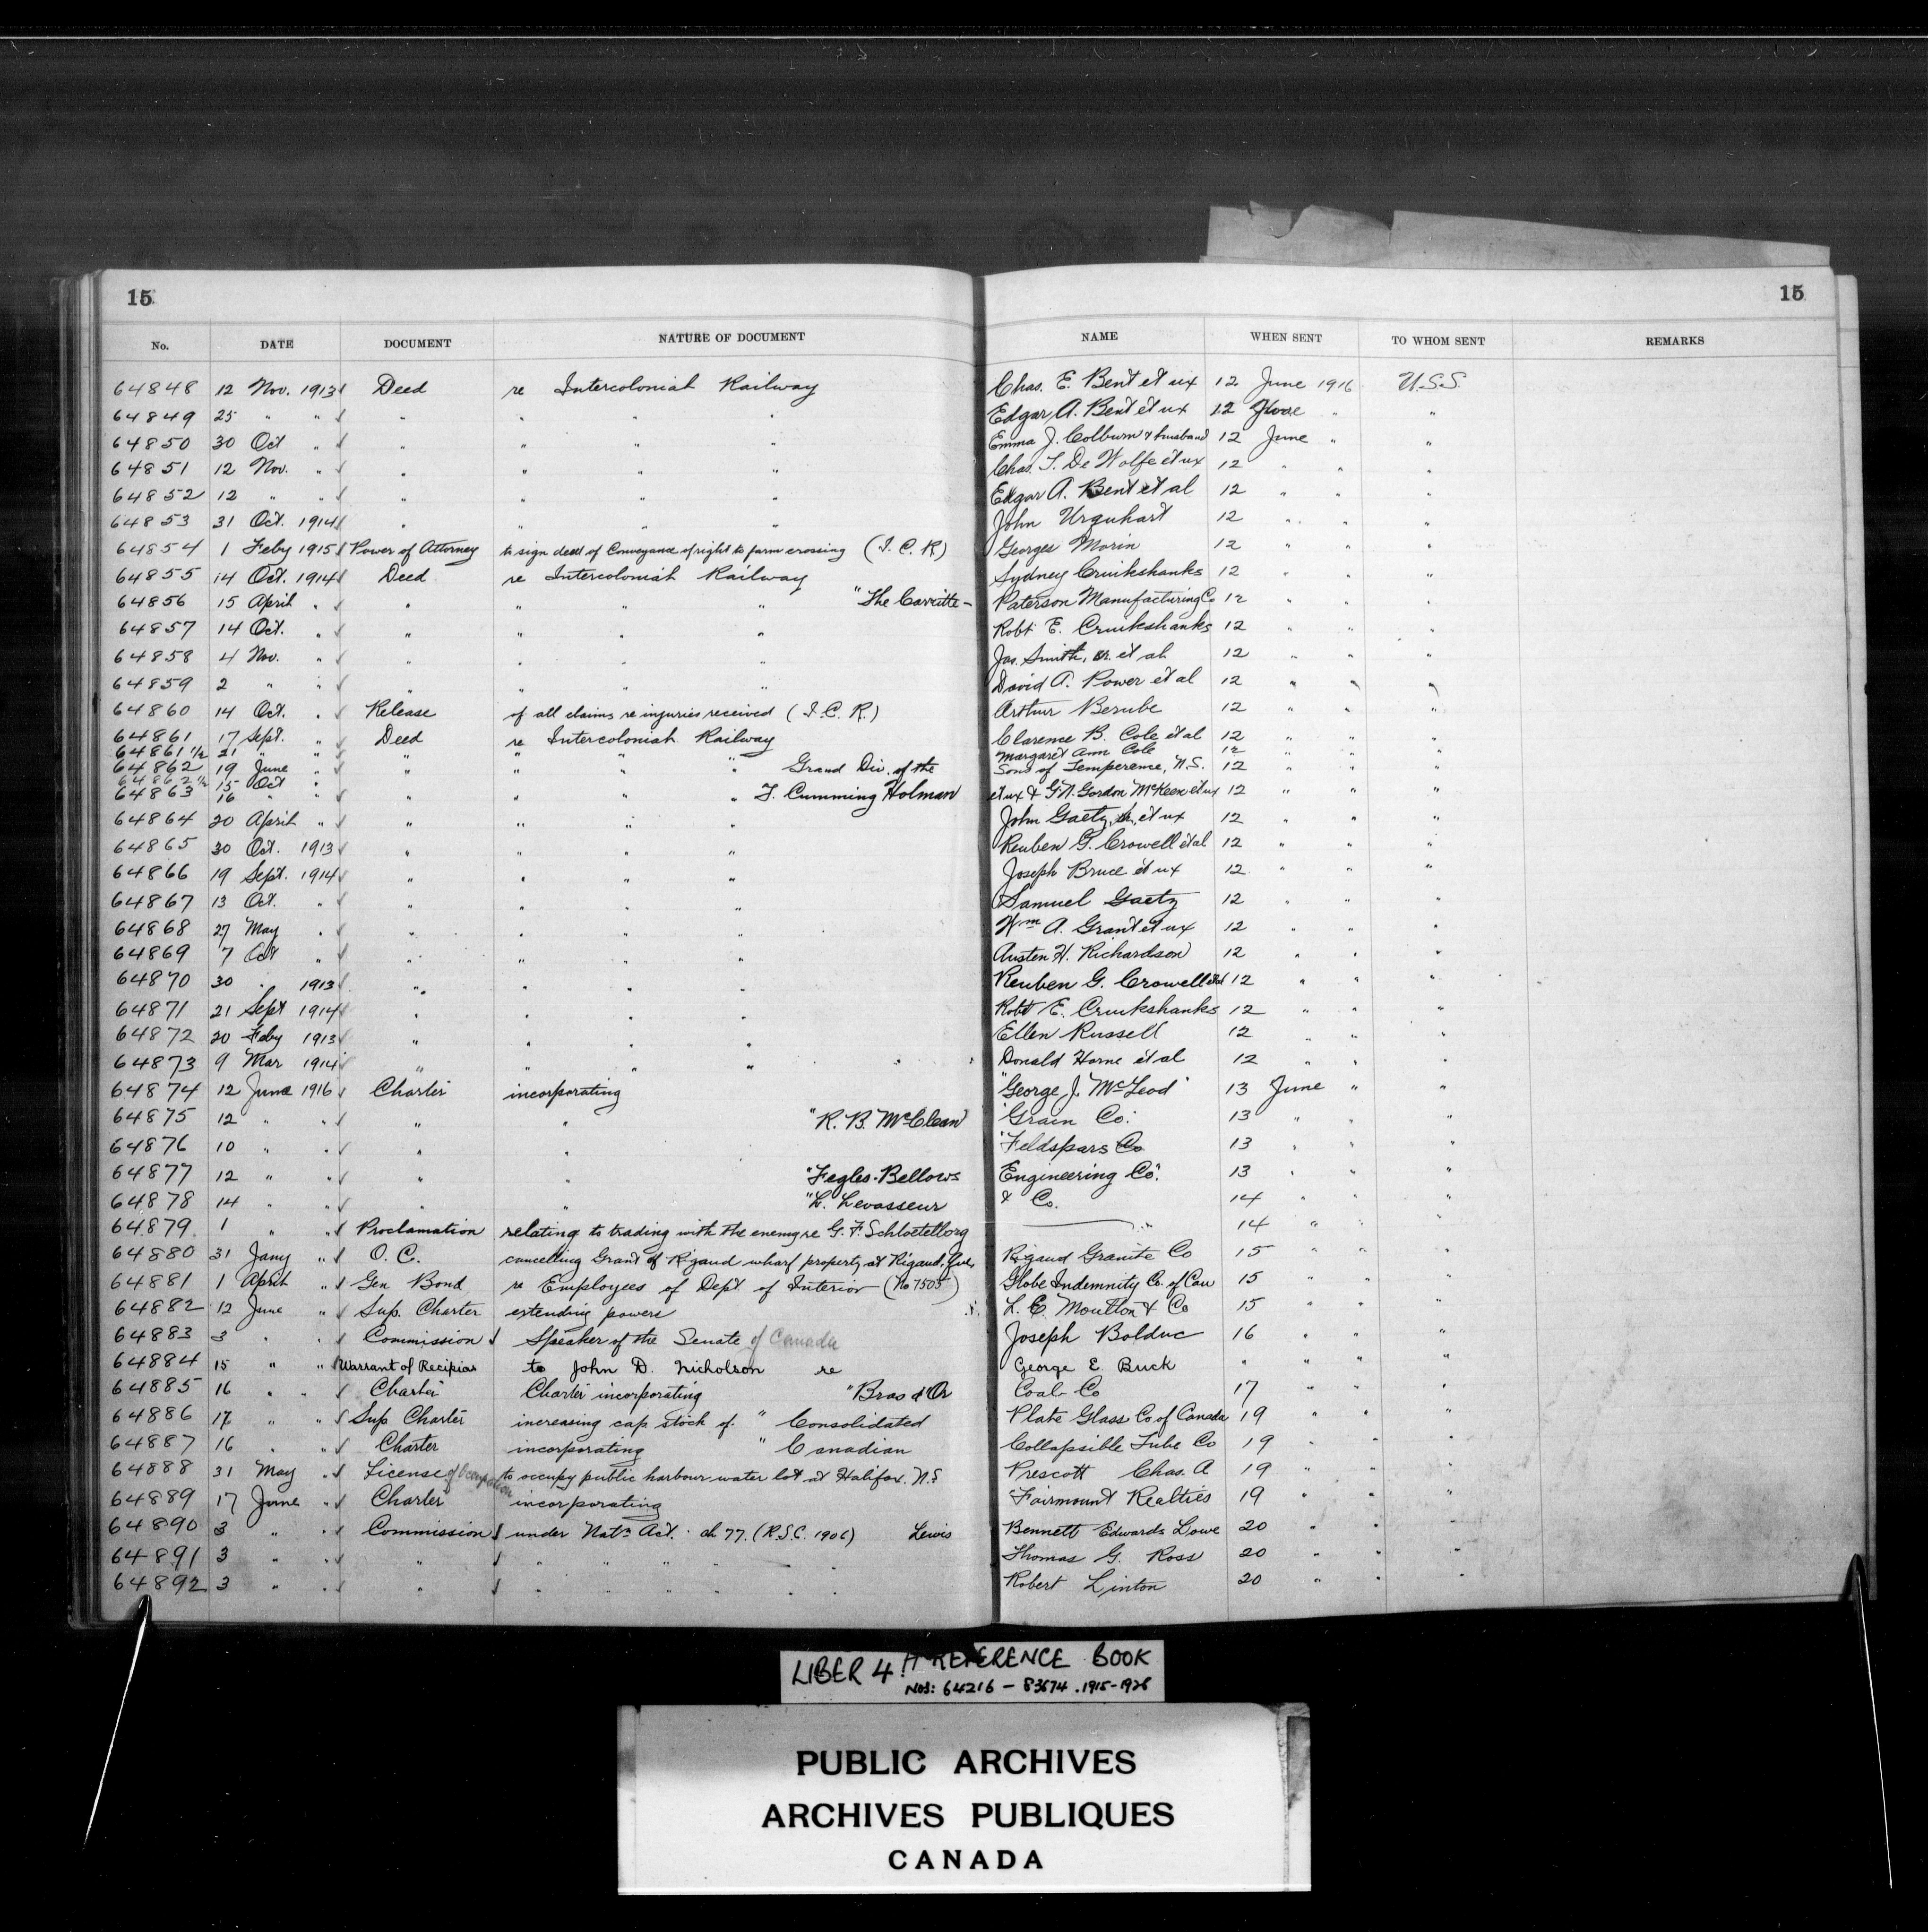 15 15
No. DATE DOCUMENT NATURE OF DOCUMENT NAME WHEN SENT TO WHOM SENT REMARKS
64848 12 Nov. 1913 Deed re Intercolonial Railway Chas. E. Bent et ux 12 June 1916 U.S.S.
64849 25 " " " " " " Edgar A. Bent et ux 12 " "
64850 30 Oct " " " " " Emma J. Colburn & husband 12 June " "
64851 12 Nov. " " " " " Chas. S. De Wolfe et ux 12 " " "
64852 12 " " " " " " Edgar A. Bent et al 12 " " "
64853 31 Oct. 1914 " " " " John Urquhart 12 " " "
64854 1 Feby 1915 Power of Attorney to sign deed of Conveyance of right to farm crossing (I.C.R) Georges Morin 12 " " "
64855 14 Oct. 1914 Deed re Intercolonial Railway Sydney Cruikshanks 12 " " "
64856 15 April " " " " " "The Paterson Manufacturing Co 12 " " "
64857 14 Oct. " " " " " Robt E. Cruikshanks 12 " " "
64858 4 Nov. " " " " " Jas. Smith, et al 12 " " "
64859 2 " " " " " " David A. Power et al 12 " " "
64860 14 Oct. " Release of all claims re injuries received (I.C.R.) Arthur Berube 12 " " "
64861 17 Sept. " Deed re Intercolonial Railway Clarence B. Cole et al 12 " " "
64861 1/2 21 " " " " " " Margaret Ann Cole 12 " " "
64862 19 June " " " " " Grand Div. of the Sons of Temperence, N.S. 12 " " "
64862 1/2 15 Oct "
64863 16 " " " " " " T. Cumming Holman et ux & G.N. Gordon McKeen et ux 12 " " "
64864 20 April " " " " " John Gaetz, et ux 12 " " "
64865 30 Oct. 1913 " " " " Reuben G. Crowell et al 12 " " "
64866 19 Sept. 1914 " " " " Joseph Bruce et ux 12 " " "
64867 13 Oct. " " " " " Samuel Gaetz 12 " " "
64868 27 May " " " " " Wm A. Grant et ux 12 " " "
64869 7 Oct " " " " " Austen H. Richardson 12 " " "
64870 30 " 1913 " " " " Reuben G. Crowell et al 12 " " "
64871 21 Sept 1914 " " " " Robt E. Cruikshanks 12 " " "
64872 20 Feby 1913 " " " " Ellen Russell 12 " " "
64873 9 Mar 1914 " " " " " " Donald Horne et al 12 " " "
64874 12 June 1916 Charter incorporating "George J. McLeod" 13 June " "
64875 12 " " " " "R. B. McClean Grain Co." 13 " " "
64876 10 " " " " "Feldspars Co 13 " " "
64877 12 " " " " "Fegles-Bellows Engineering Co." 13 " " "
64878 14 " " " " "L. Levasseur & Co. 14 " " "
64879 1 " " Proclamation relating to trading with the enemy re G. F. 14 " " "
64880 31 Jany " O. C. cancelling Grant of Rigaud wharf property at Rigaud, Que, Rigaud Granite Co 15 " " "
64881 1 April " Gen Bond re Employees of Dept. of Interior (No 7505) Globe Indemnity Co. of Can 15 " " "
64882 12 June " Sup. Charter extending powers L. E. Moulton & Co 15 " " "
64883 3 " " Commission Speaker of the Senate of Canada Joseph Bolduc 16 " " "
64884 15 " " Warrant of Recipias to John D. Nicholson re George E. Buck " " " "
64885 16 " " Charter Charter incorporating "Bras d'Or Coal Co 17 " " "
64886 17 " " Sup Charter increasing cap stock of " Consolidated Plate Glass Co of Canada 19 " " "
64887 16 " " Charter incorporating " Canadian Collapsible Tube Co 19 " " "
64888 31 May " License of Occupation to occupy public harbour water lot at Halifax. N.S Prescott Chas. A 19 " " "
64889 17 June " Charter incorporating "Fairmount Realties 19 " " "
64890 3 " " Commission under Natn Act. ch 77. (R.S.C. 1906) Lewis Bennett Edwards Lowe 20 " " "
64891 3 " " " " " " " " " Thomas G. Ross 20 " " "
64892 3 " " " " " " " " " Robert Linton 20 " " "
LIBER 4 REFERENCE BOOK
NOS: 64216 – 83674. 1915-1926
PUBLIC ARCHIVES
ARCHIVES PUBLIQUES
CANADA